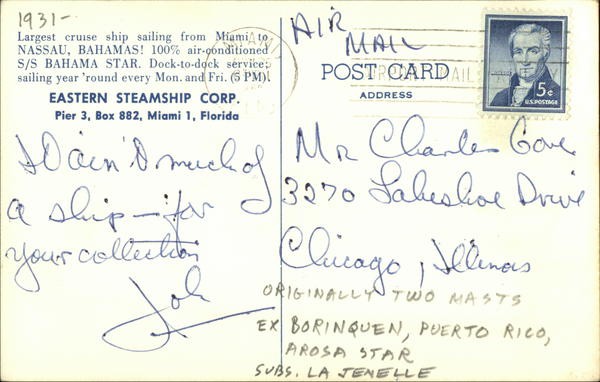 1931-
Largest cruise ship sailing from Miami to
NASSAU, BAHAMAS! 100% air-conditioned
S/S BAHAMA STAR. Dock-to-dock service;
sailing year 'round every Mon. and Fri. (5 PM).
EASTERN STEAMSHIP CORP.
Pier 3, Box 882, Miami 1, Florida
much of
a ship — for
your collection
AIR
MAIL
POST CARD
ADDRESS
MIAMI
5¢
U.S. POSTAGE
Mr Charles Gove
3270 Lakeshore Drive
Chicago, Illinois
ORIGINALLY TWO MASTS
EX BORINQUEN, PUERTO RICO,
AROSA STAR
SUBS. LA JENELLE